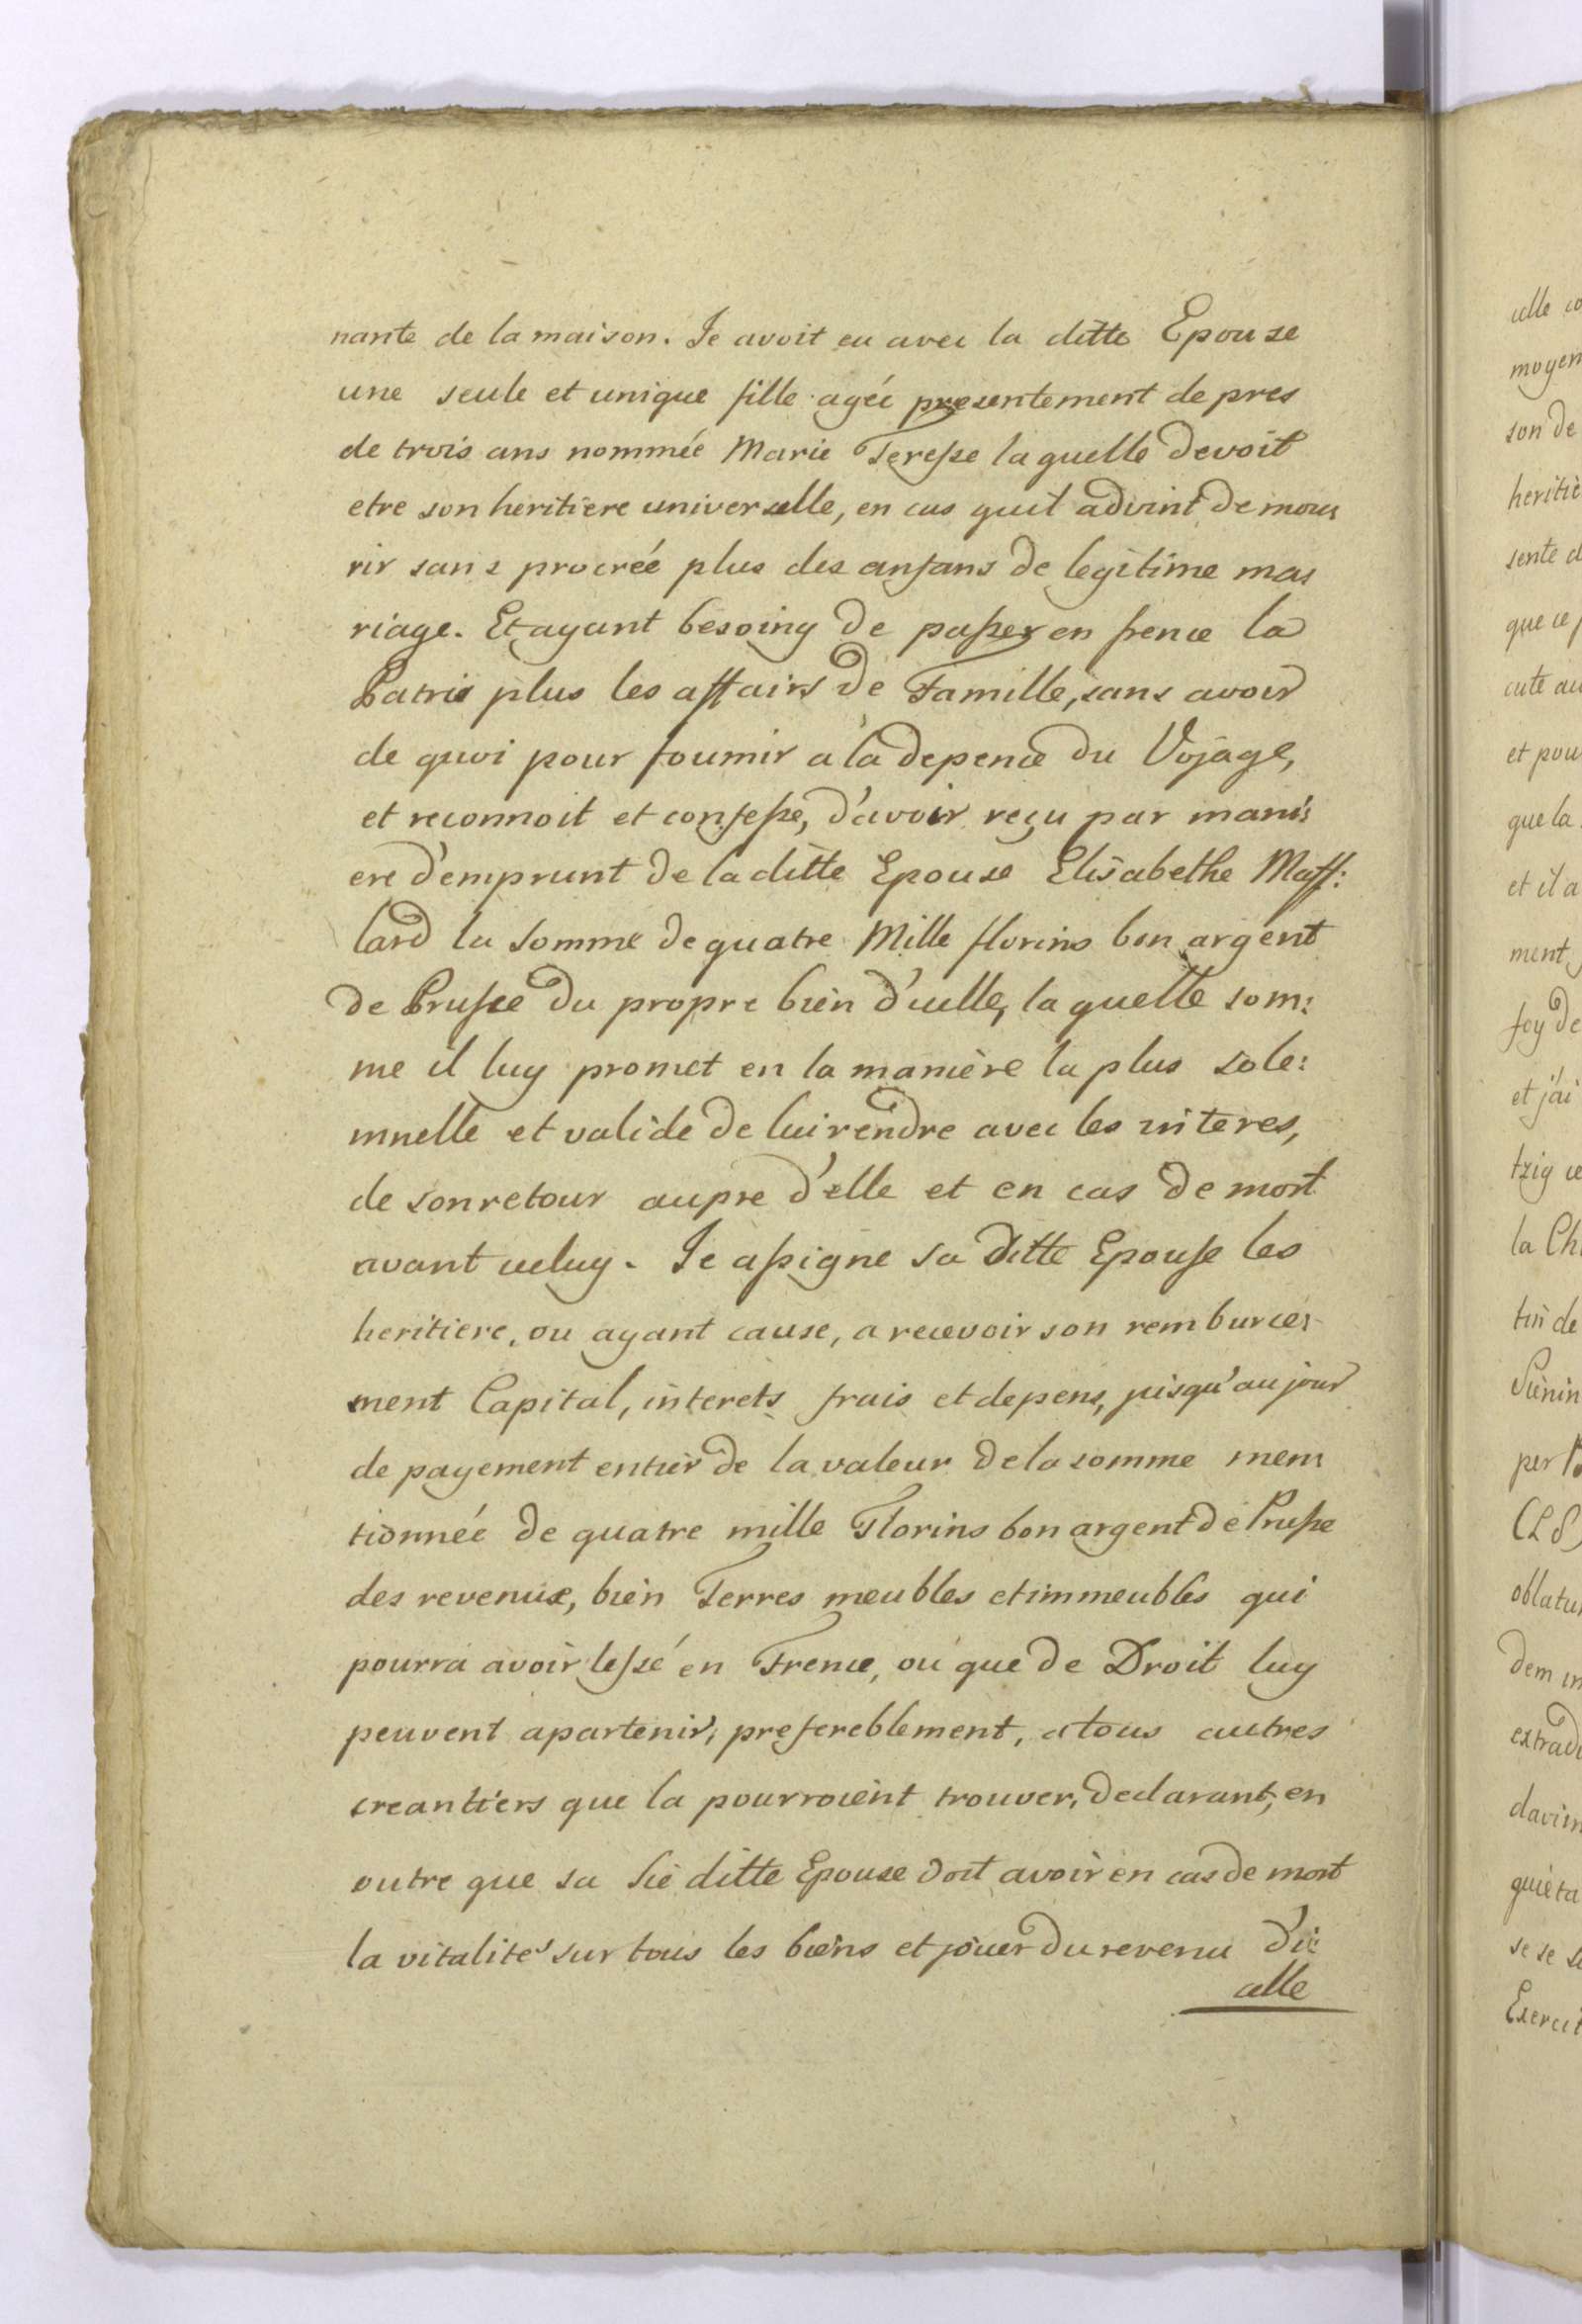 nante de la maison. Je avoit eu avec la ditte Epouse
une seule et unique fille agée presentement de pres
de trois ans nommée Marie Teresse la quelle devoit
etre son heritiere universelle, en cas quil advint de mou:
rir sans procréé plus des anfans de legitime ma:
riage. Et ayant besoing de passer en frence la
Patrie plus les affairs de Famille, sans avoir
de quoi pour fournir a la depence du Vojage,
et reconnoit et confesse, d'avoir reçu par mani:
ere d'emprunt de la ditte Epouse Elisabethe Maff:
lard la Somme de quatre Mille florins bon argent
de Prusse du propre bien d'icelle, la quelle som:
me il luy promet en la manière la plus sole:
mnelle et valide de lui rendre avec les interes,
de son retour aupre d'elle et en cas de mort
avant celuy. Je assigne sa ditte Epouse les
heritiere, ou ayant cause, a recevoir son remburce:
ment Capital, interets frais et depens, jusqu'au jour
de payement entier de la valeur de la somme men:
tionnée de quatre mille Florins bon argent de Prusse
des revenue, bien Terres meubles et immeubles qui
pourra avoir lessé en Frence, ou que de Droit luy
peuvent apartenir, prefereblement, a tous autres
creantiers que la pourroient trouver, declarant, en
outre que sa Sie ditte Epouse doit avoir en cas de mort
la vitalité sur tous les biens et jouer du revenu d'i:
celle
celle
moyen
son de
heritiè
sente d
que ce
cute au
et pou
que la
et il a
ment
foy de
et j'ai
tzig ce
la Ch
tin de
per
(LS)
oblatu
dem in
extrad
quieta
se se
Exercit